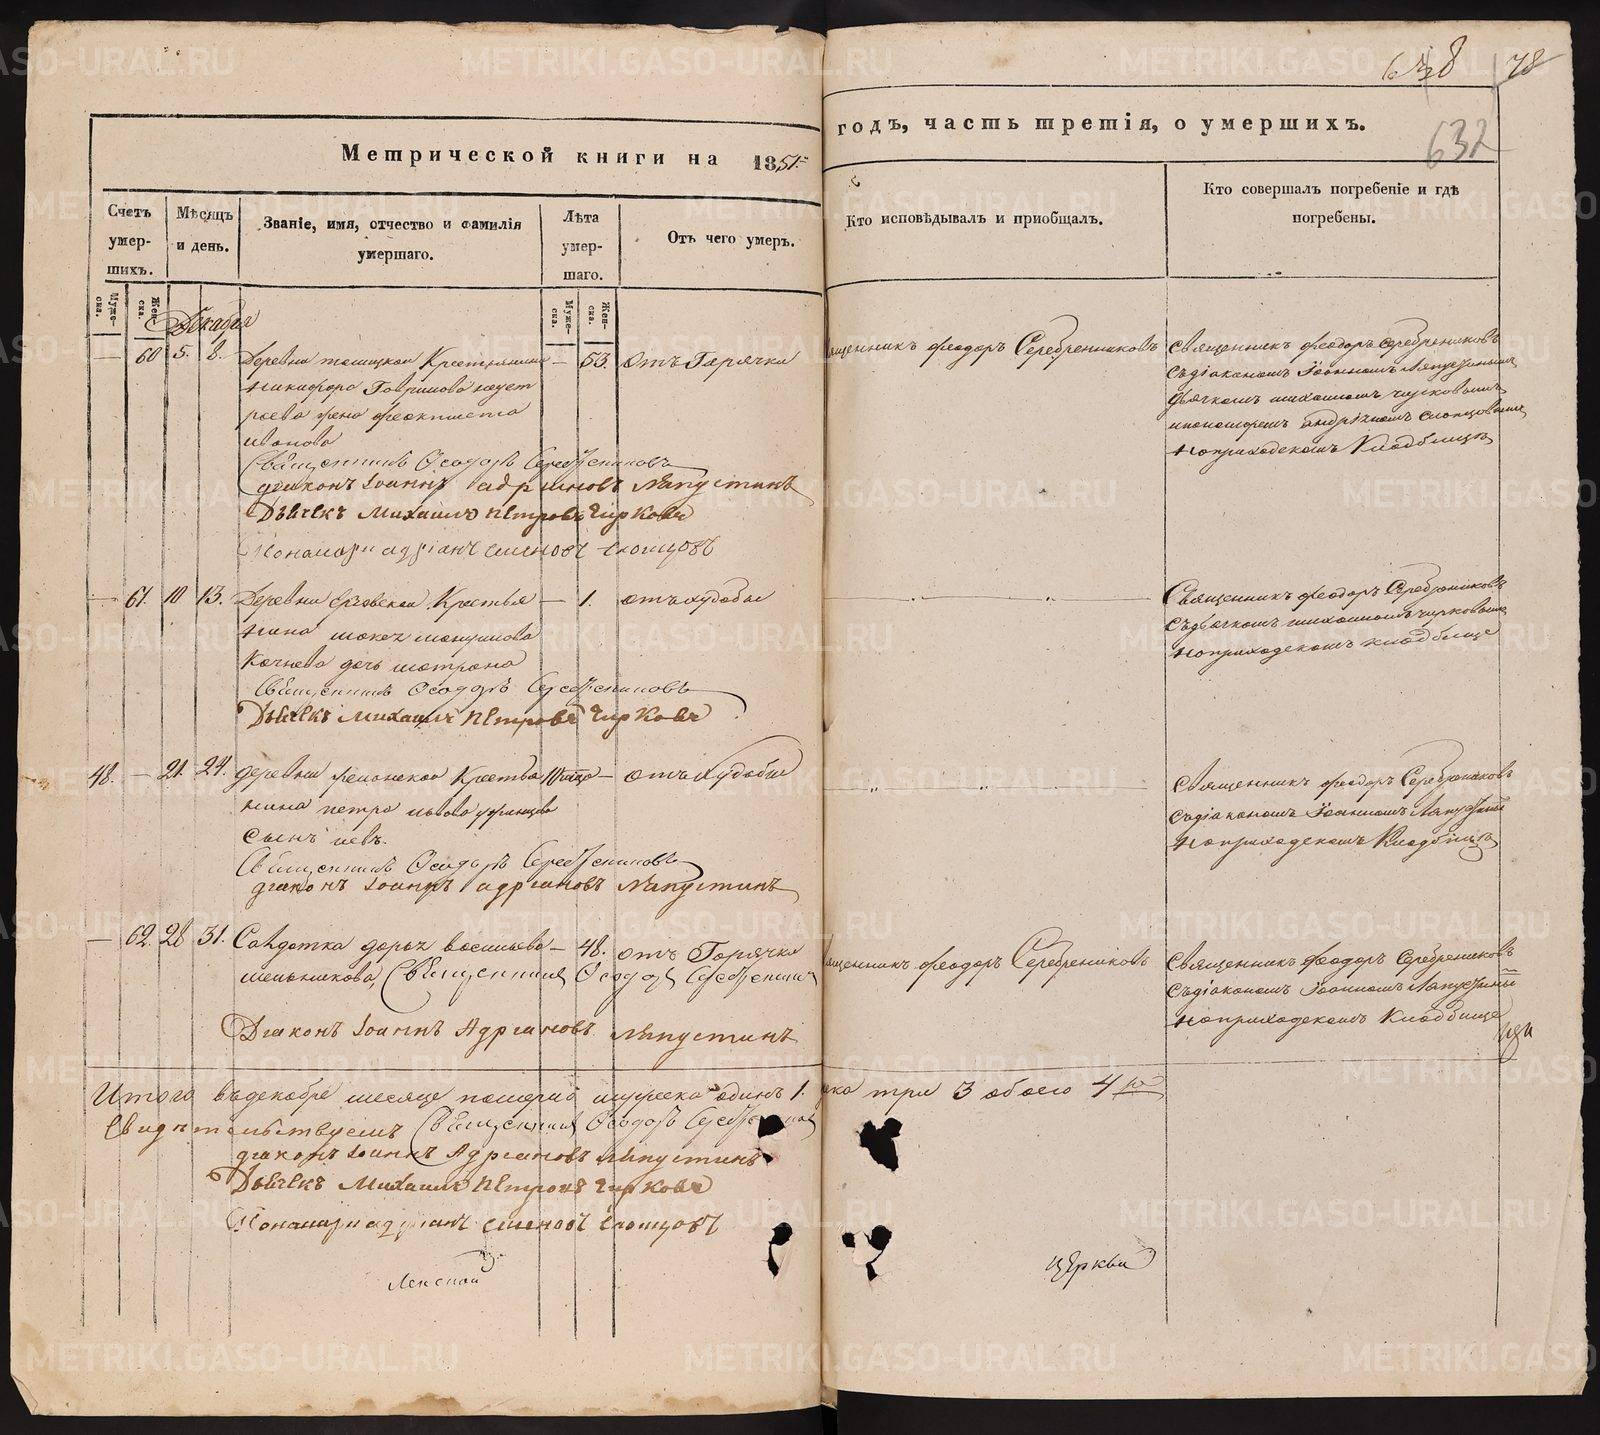 648 78
632
Метрической книги на 1851 годъ, часть третія, о умершихъ.
Счетъ умер-шихъ.
Мѣсяцъ и день.
Званіе, имя, отчество и фамилія умершаго.
Лѣта умер-шаго.
Отъ чего умеръ.
Кто исповѣдывалъ и приобщалъ.
Кто совершалъ погребеніе и гдѣ погребены.
Муже-ска.
Жен-ска.
Муже-ска.
Жен-ска.
Декабря
— 60 5. 8. Деревни Крестьянина — 53. отъ Горячки
Никифора Гаврилова
жена феоктиста
иванова
Священникъ Ѳеодоръ Серебрениковъ
діаконъ Іоаннъ адріановъ Лапустинъ
Дьячекъ Михаилъ Петровъ Чирковъ
Пономарь адріанъ Слопцовъ
Священникъ феодоръ Серебрениковъ
Священникъ феодоръ Серебрениковъ
съ діакономъ Іоанномъ Лапустинымъ
дьячкомъ михаиломъ чирковымъ
и пономаремъ андріаномъ слопцовымъ
на приходскомъ Кладбищѣ
— 61. 10 13. Деревни Крестья — 1. отъ худобы
нина
дочь матрона
Священникъ Ѳеодоръ Серебрениковъ
Дьячекъ Михаилъ Петровъ Чирковъ
Священникъ феодоръ Серебрениковъ
съ дьячкомъ михаиломъ чирковымъ
на приходскомъ кладбище
48. — 21. 24. деревни Крестья — отъ худобы
нина петра львова
сынъ левъ.
Священникъ Ѳеодоръ Серебрениковъ
діаконъ Іоаннъ адріановъ Лапустинъ
Священникъ феодоръ Серебрениковъ
съ діакономъ Іоанномъ Лапустинымъ
на приходскомъ Кладбищѣ
— 62. 28 31. Солдатка дарья васильева — 48. отъ Горячки
мельникова, Священникъ Ѳеодоръ Серебрениковъ
Діаконъ Іоаннъ Адріановъ Лапустинъ
Священникъ феодоръ Серебрениковъ
Священникъ феодоръ Серебрениковъ
съ діакономъ Іоанномъ Лапустинымъ
на приходскомъ Кладбище
Итого въ декабре месяце померло мужеска одинъ 1. ска три 3 обоего 4
Свидѣтельствуемъ Священникъ Ѳеодоръ
діаконъ Іоаннъ Адріановъ Лапустинъ
Дьячекъ Михаилъ Петровъ Чирковъ
Пономарь адріанъ Слопцовъ
церкви
METRIKI.GASO-URAL.RU